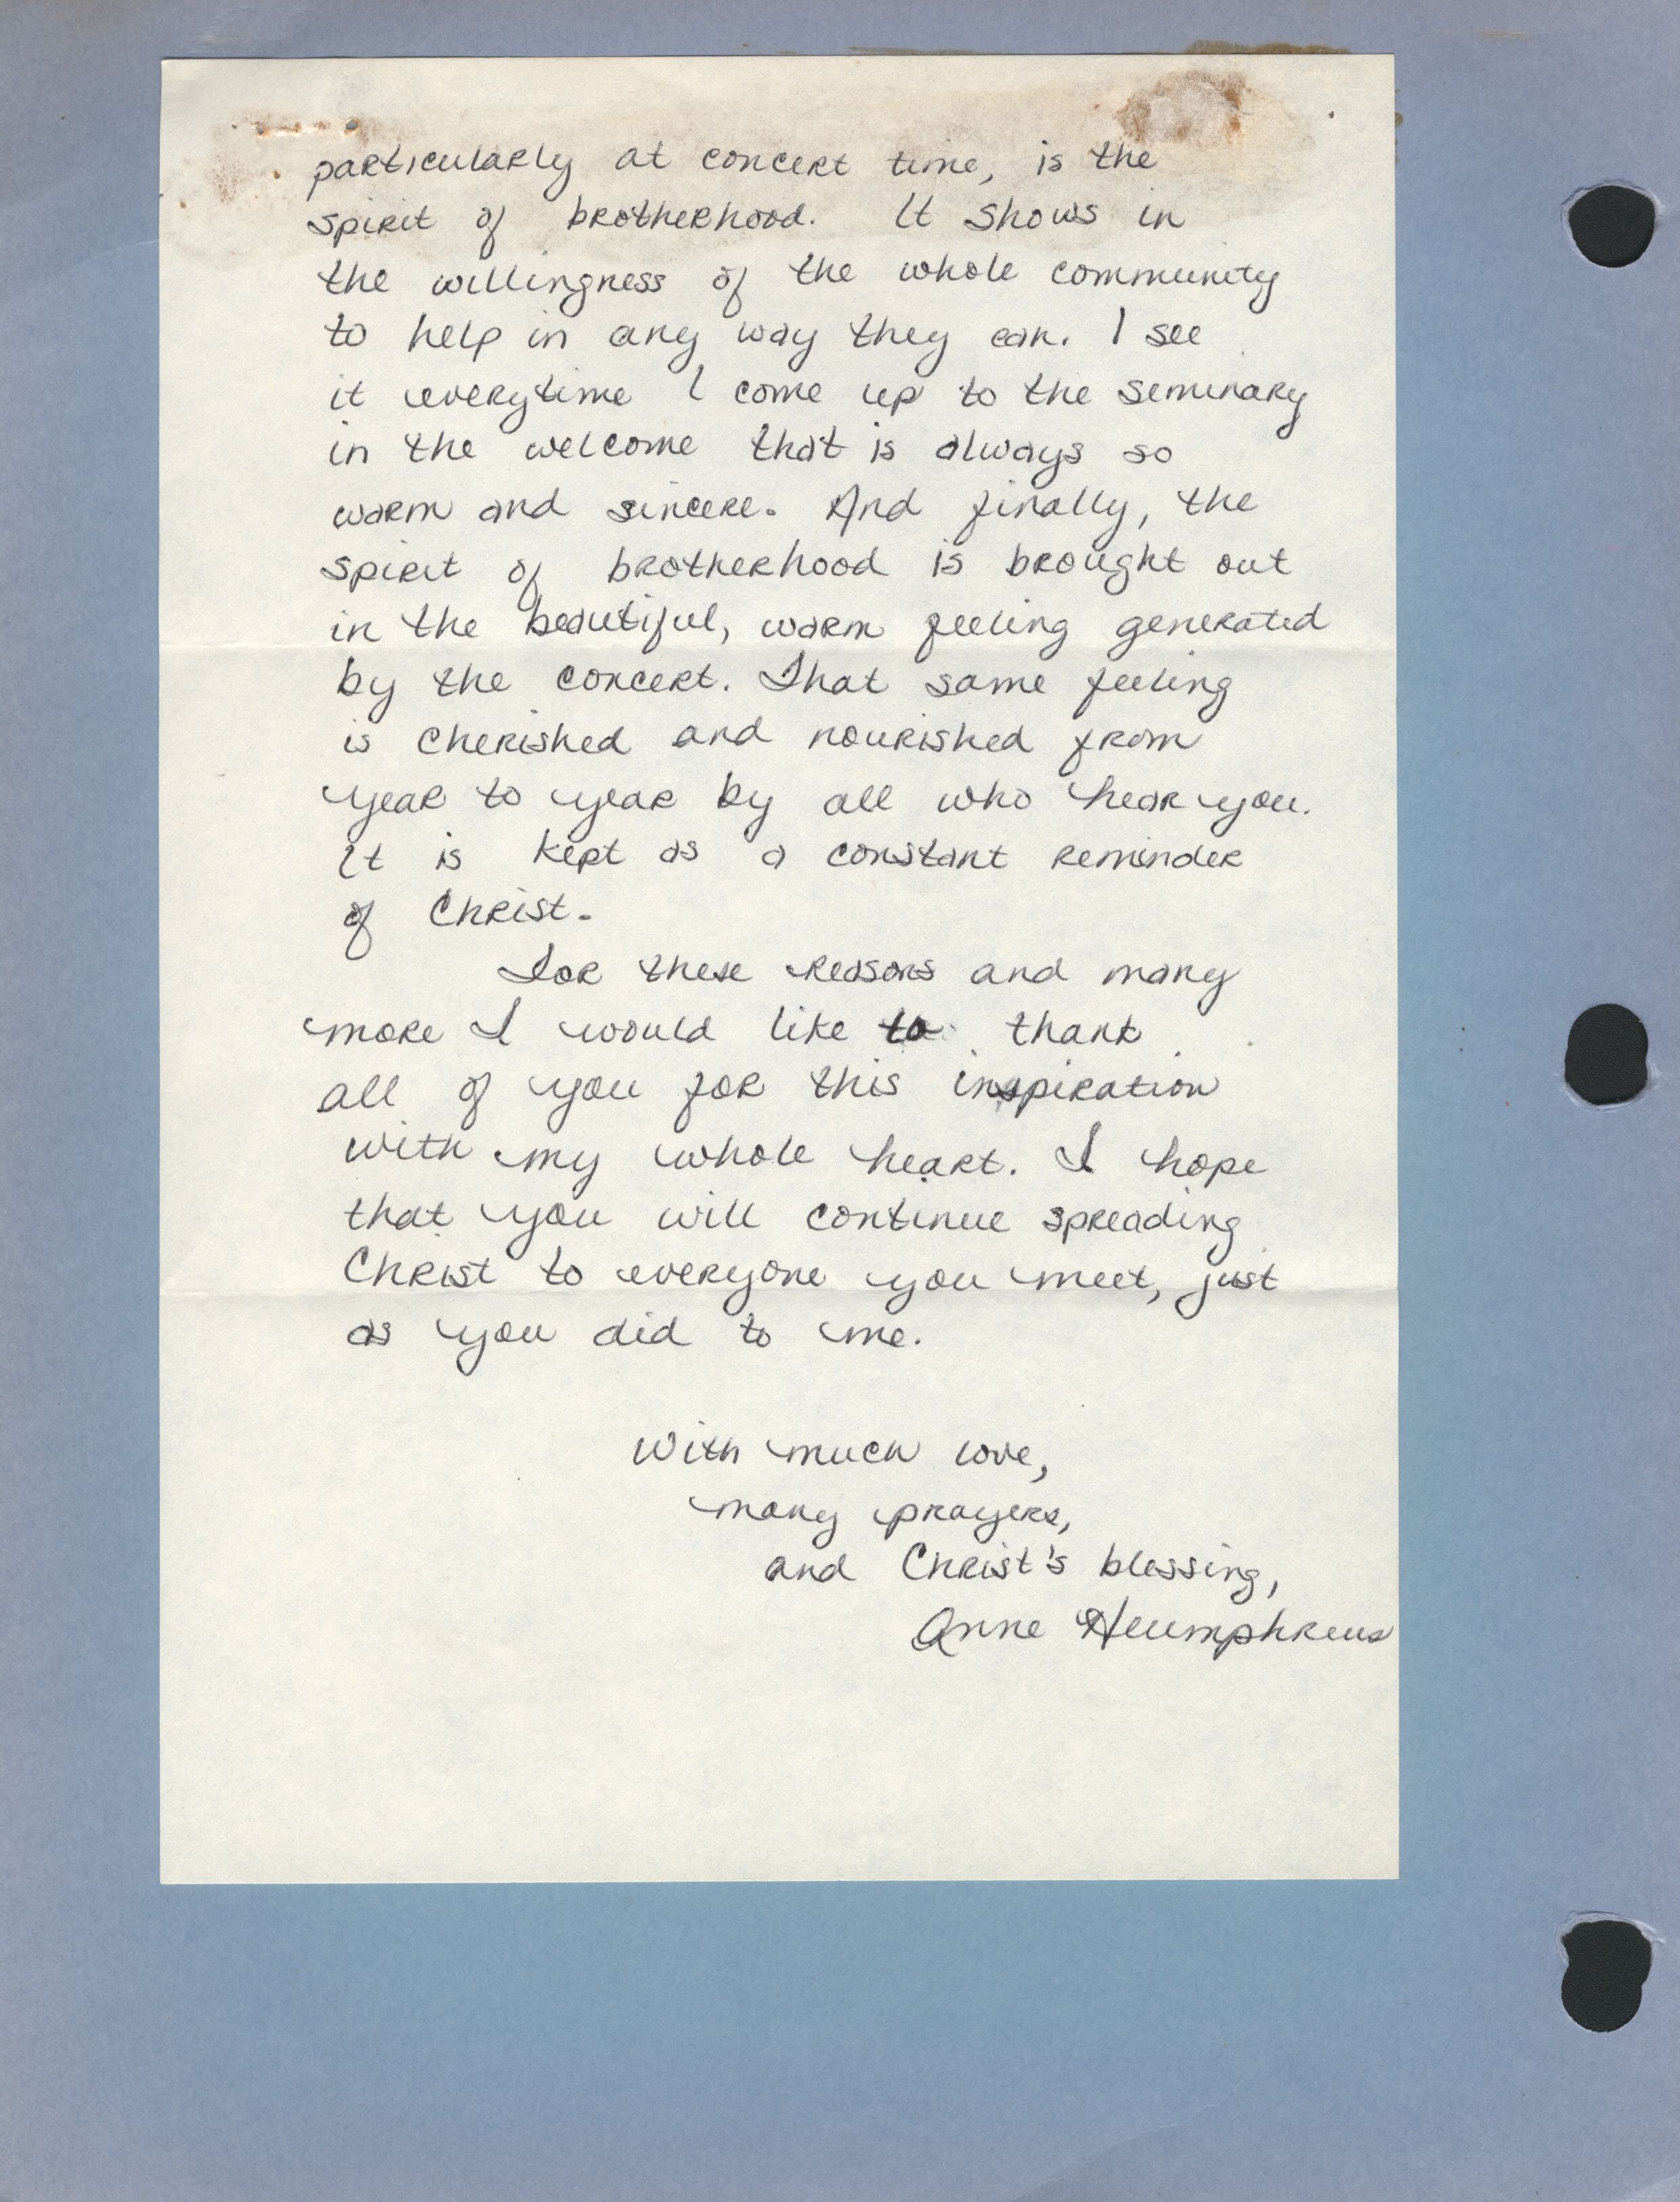 particularly at concert time, is the
spirit of brotherhood. It shows in
the willingness of the whole community
to help in any way they can. I see
it everytime I come up to the seminary
in the welcome that is always so
warm and sincere. And finally, the
spirit of brotherhood is brought out
in the beautiful, warm feeling generated
by the concert. That same feeling
is cherished and nourished from
year to year by all who hear you.
It is kept as a constant reminder
of Christ.
For these reasons and many
more I would like to thank
all of you for this inspiration
with my whole heart. I hope
that you will continue spreading
Christ to everyone you meet, just
as you did to me.
With much love,
many prayers,
and Christ's blessing,
Anne